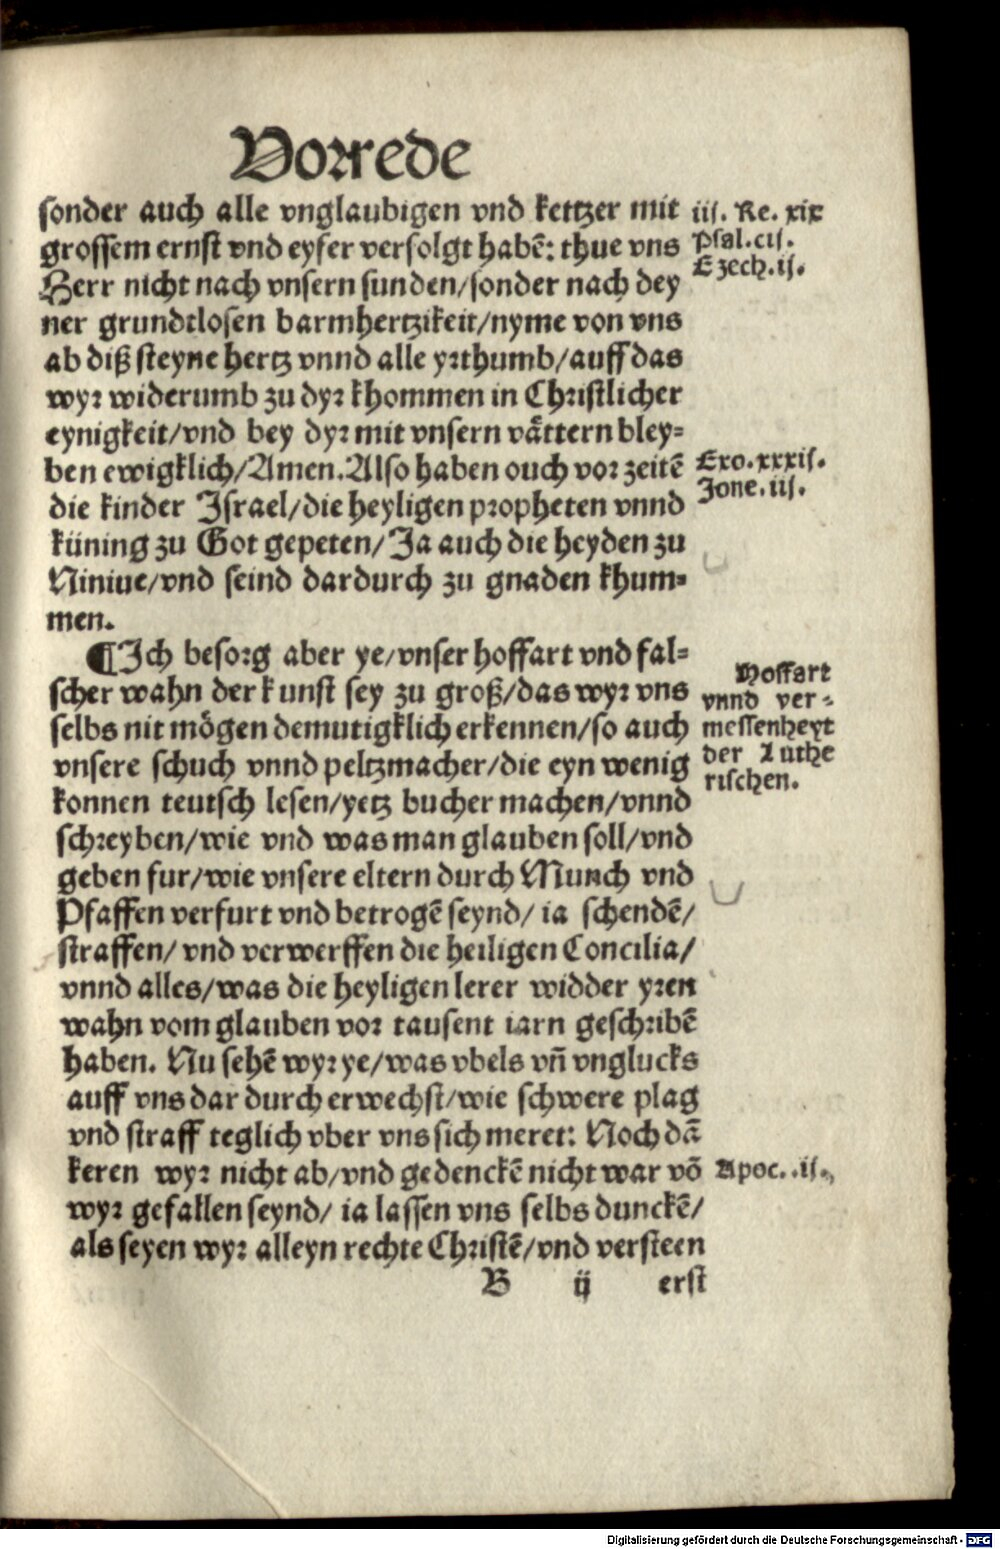 Vorrede
sonder auch alle vnglaubigen vnd kettzer mit
grossem ernst vnd eyfer verfolgt habē: thue vns
Herr nicht nach vnsern sunden/sonder nach dey
ner grundtlosen barmhertzikeit/nyme von vns
ab diß steyne hertz vnnd alle yrthumb/auff das
wyr widerumb zu dyr khommen in Christlicher
eynigkeit/vnd bey dyr mit vnsern vättern bley=
ben ewigklich/Amen. Also haben ouch vor zeitē
die kinder Israel/die heyligen propheten vnnd
küning zu Got gepeten/Ja auch die heyden zu
Niniue/vnd seind dardurch zu gnaden khum=
men.
¶Ich besorg aber ye/vnser hoffart vnd fal=
scher wahn der kunst sey zu groß/das wyr vns
selbs nit mögen demutigklich erkennen/so auch
vnsere schuch vnnd peltzmacher/die eyn wenig
konnen teutsch lesen/yetz bucher machen/vnnd
schreyben/wie vnd was man glauben soll/vnd
geben fur/wie vnsere eltern durch Munch vnd
Pfaffen verfurt vnd betrogē seynd/ ia schendē/
straffen/ vnd verwerffen die heiligen Concilia/
vnnd alles/was die heyligen lerer widder yren
wahn vom glauben vor tausent iarn geschribē
haben. Nu sehē wyr ye/was vbels vn̄ vnglucks
auff vns dar durch erwechst/wie schwere plag
vnd straff teglich vber vns sich meret: Noch dā
keren wyr nicht ab/vnd gedenckē nicht war vō
wyr gefallen seynd/ ia lassen vns selbs dunckē/
als seyen wyr alleyn rechte Christē/vnd versteen
B ij erst
iij. Re. xix
Psal. cij.
Ezech. ij.
Exo. xxxij.
Jone. iij.
Hoffart
vnnd ver=
messenheyt
der Luthe
rischen.
Apoc. ij.
Digitalisierung gefördert durch die Deutsche Forschungsgemeinschaft - DFG